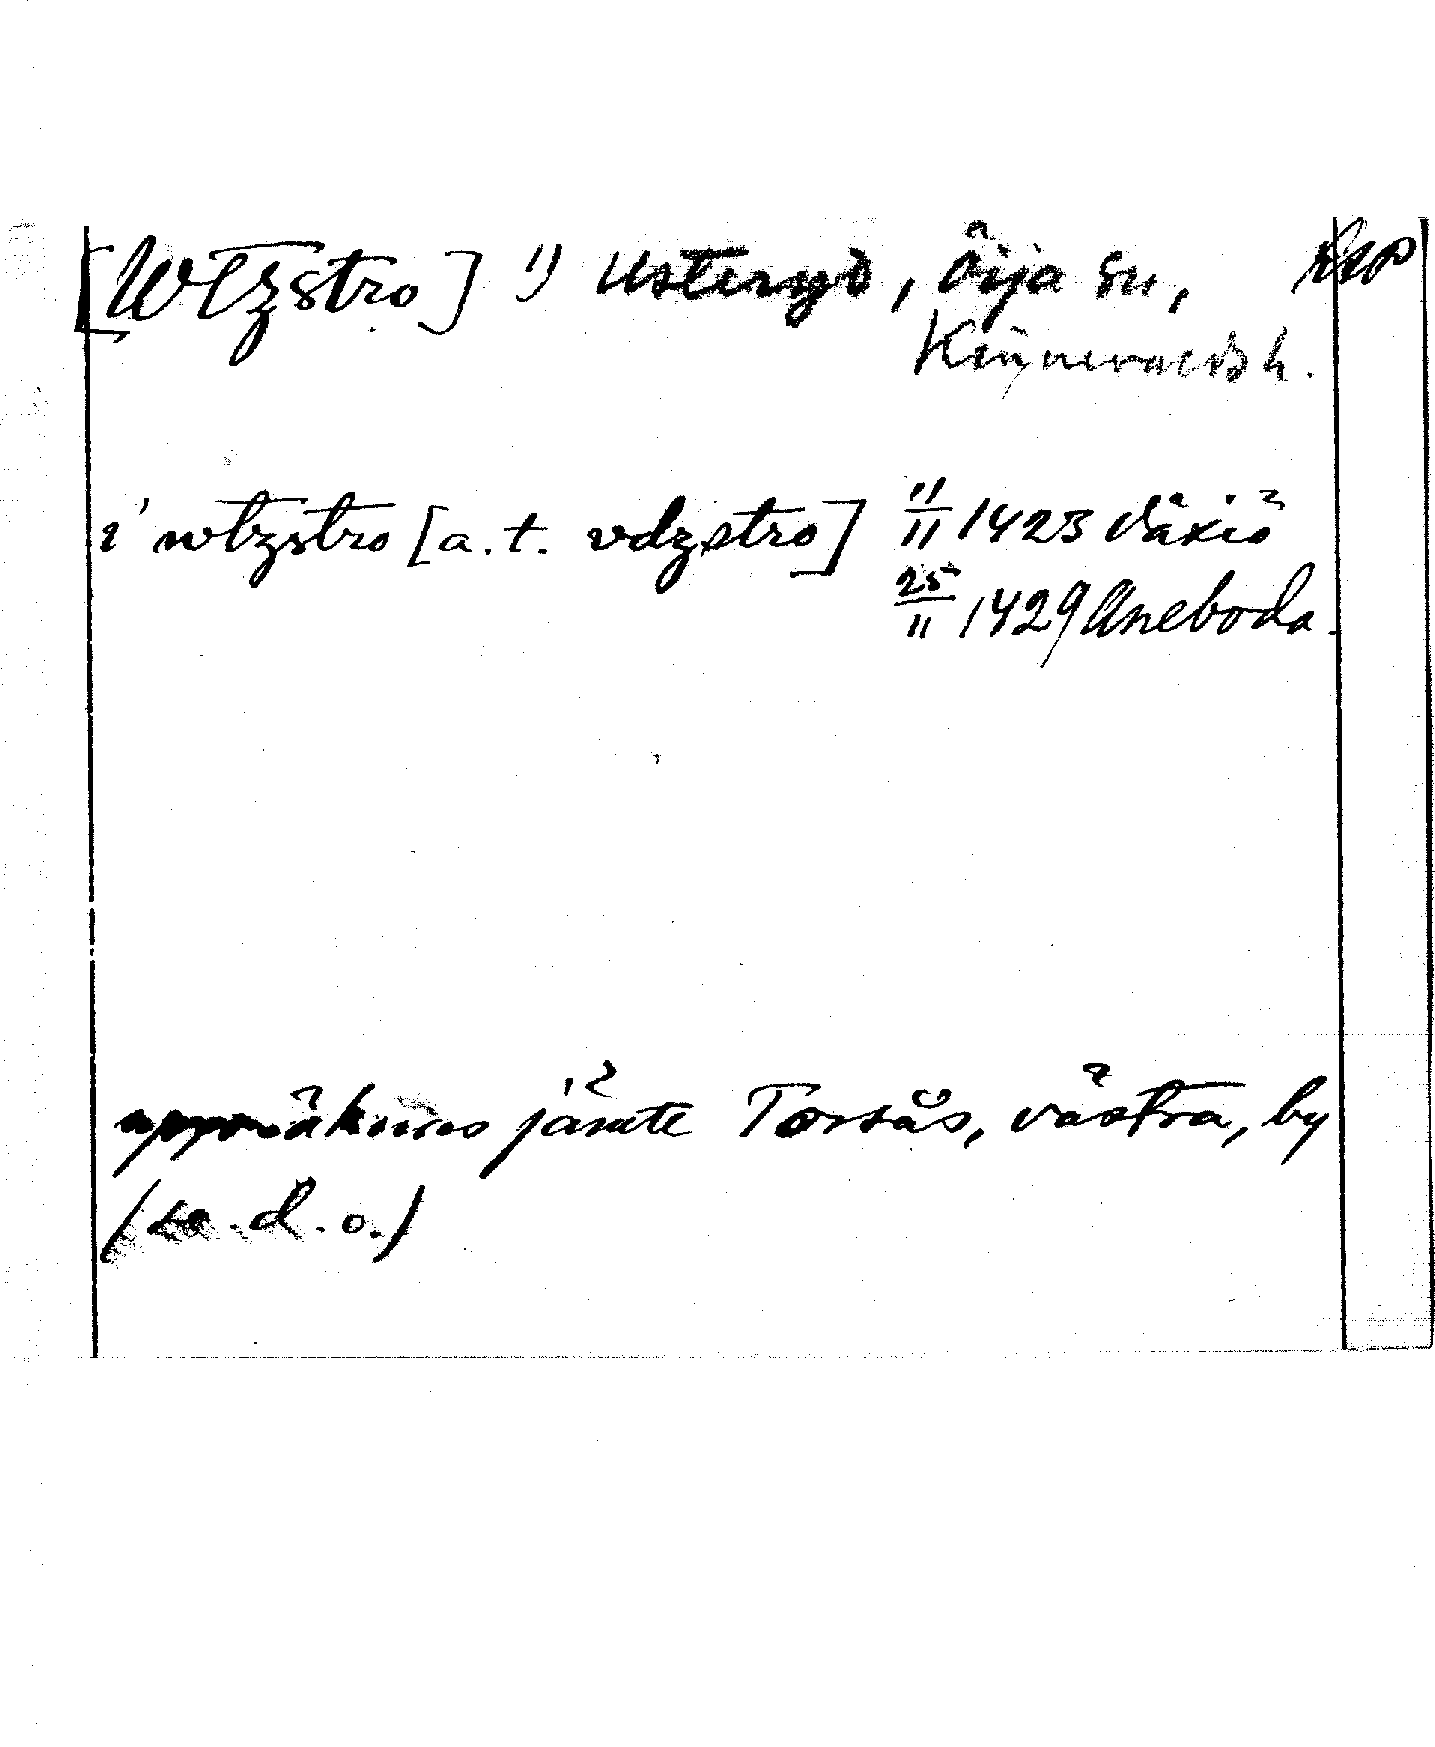 [Wtzstro] 1) Usteryd, Öija sn, RAP
Kinnevalds h.
i wtzstro [a.t. vdzstro] 11/11 1423 Växiö
25/11 1429 Aneboda.
uppräknas jämte Torsås, västra, by
(se. d. o.)